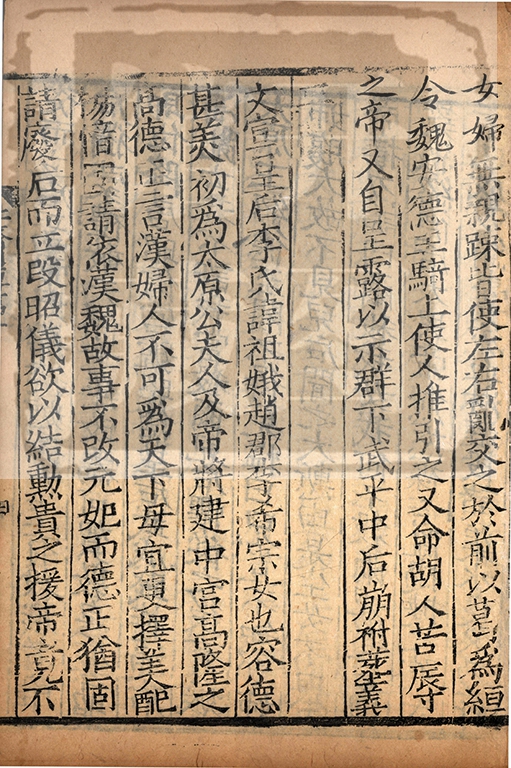 女婦無親疎皆使左右亂交之於前以葛爲絙
令魏安德主騎上使人推引之又命胡人苦辱
之帝又自呈露以示群下武平中后崩祔葬義
文宣皇后李氏諱祖娥趙郡李希宗女也容德
甚美初爲太原公夫人及帝將建中宮高隆之
高德正言漢婦人不可爲天下母宜更擇美配
楊愔固請依漢魏故事不改元妃而德正猶固
請廢后而立段昭儀欲以結勳貴之援帝竟不